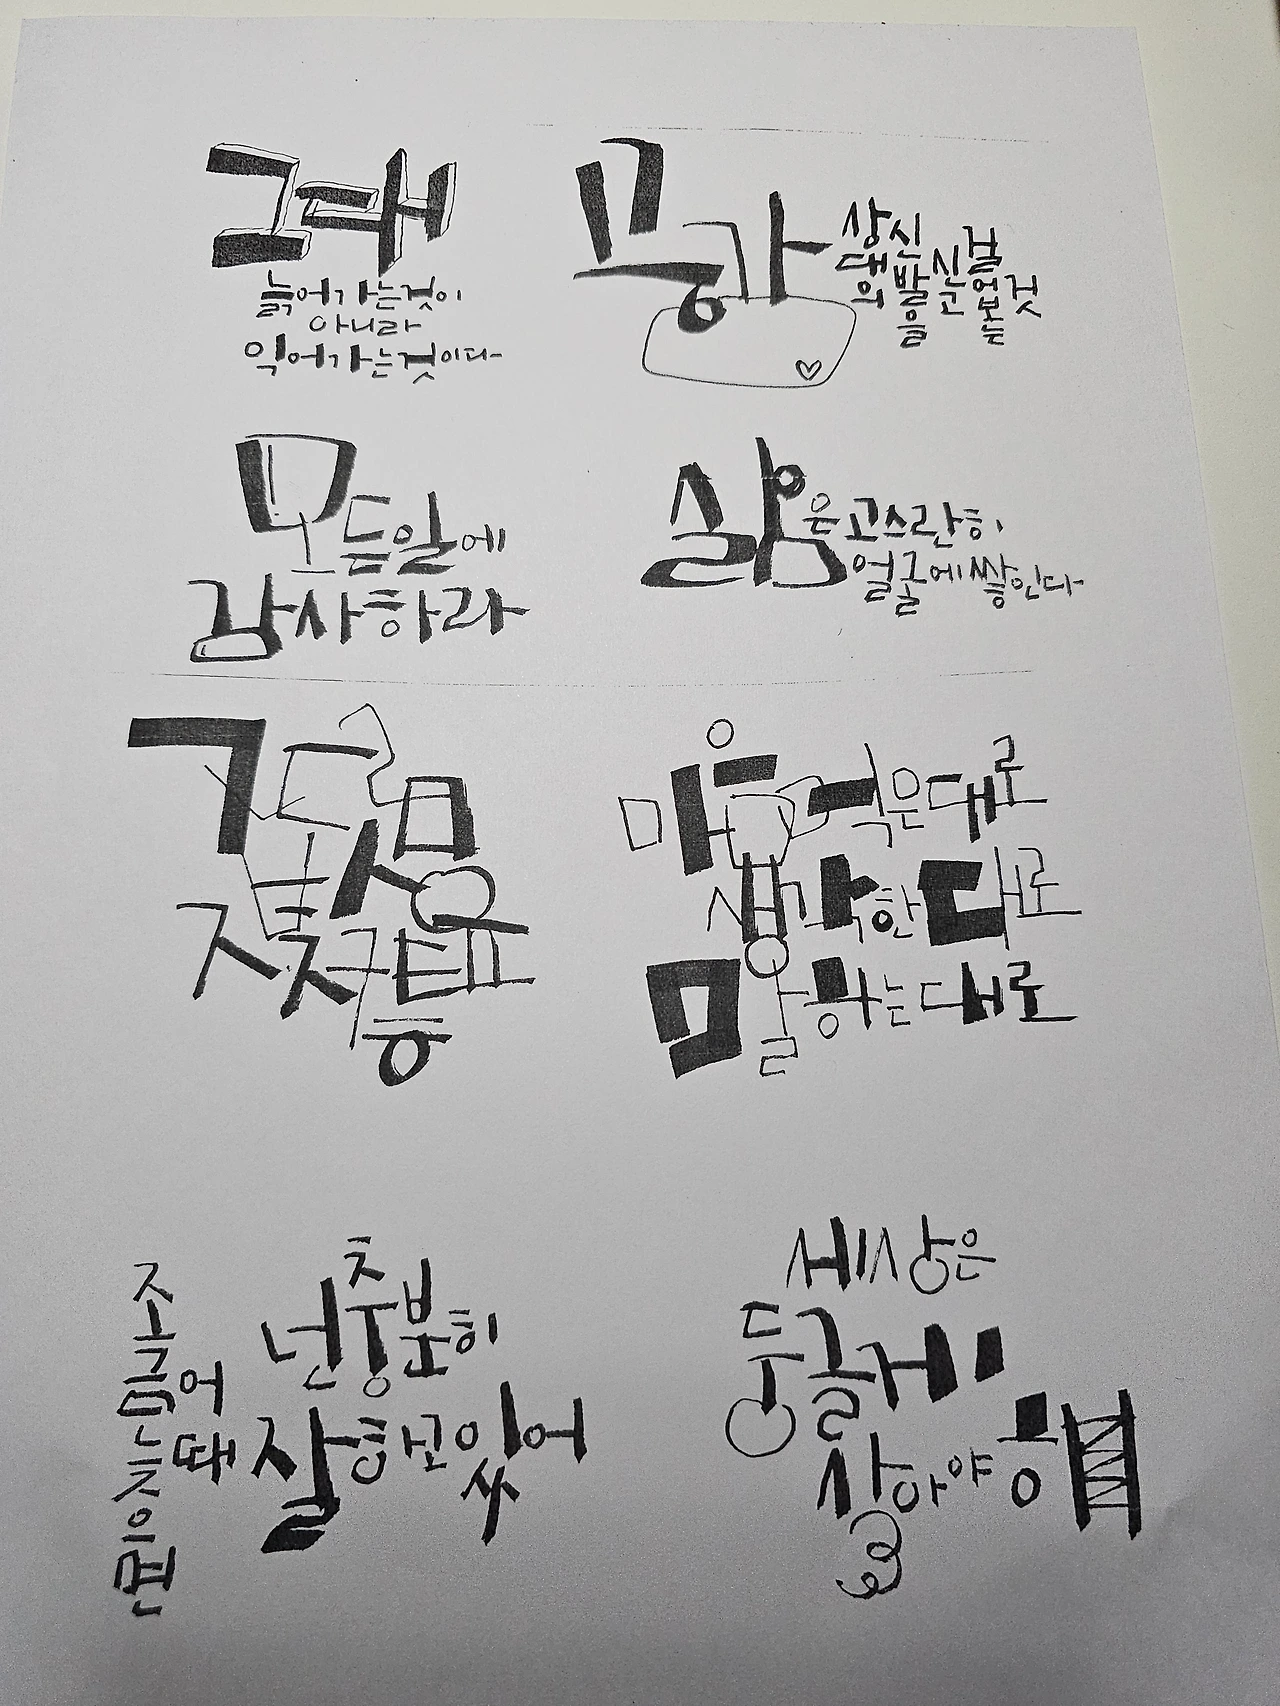 그대
늙어가는것이
아니라
익어가는것이다
공감
상대의
신발을
신고
걸어보는
것
모든일에
감사하라
삶은고스란히
얼굴에쌓인다
마음먹은대로
생각한대로
말하는대로
조금늦으면
어때
넌충분히
잘하고있어
세상은
둥글게
살아야해